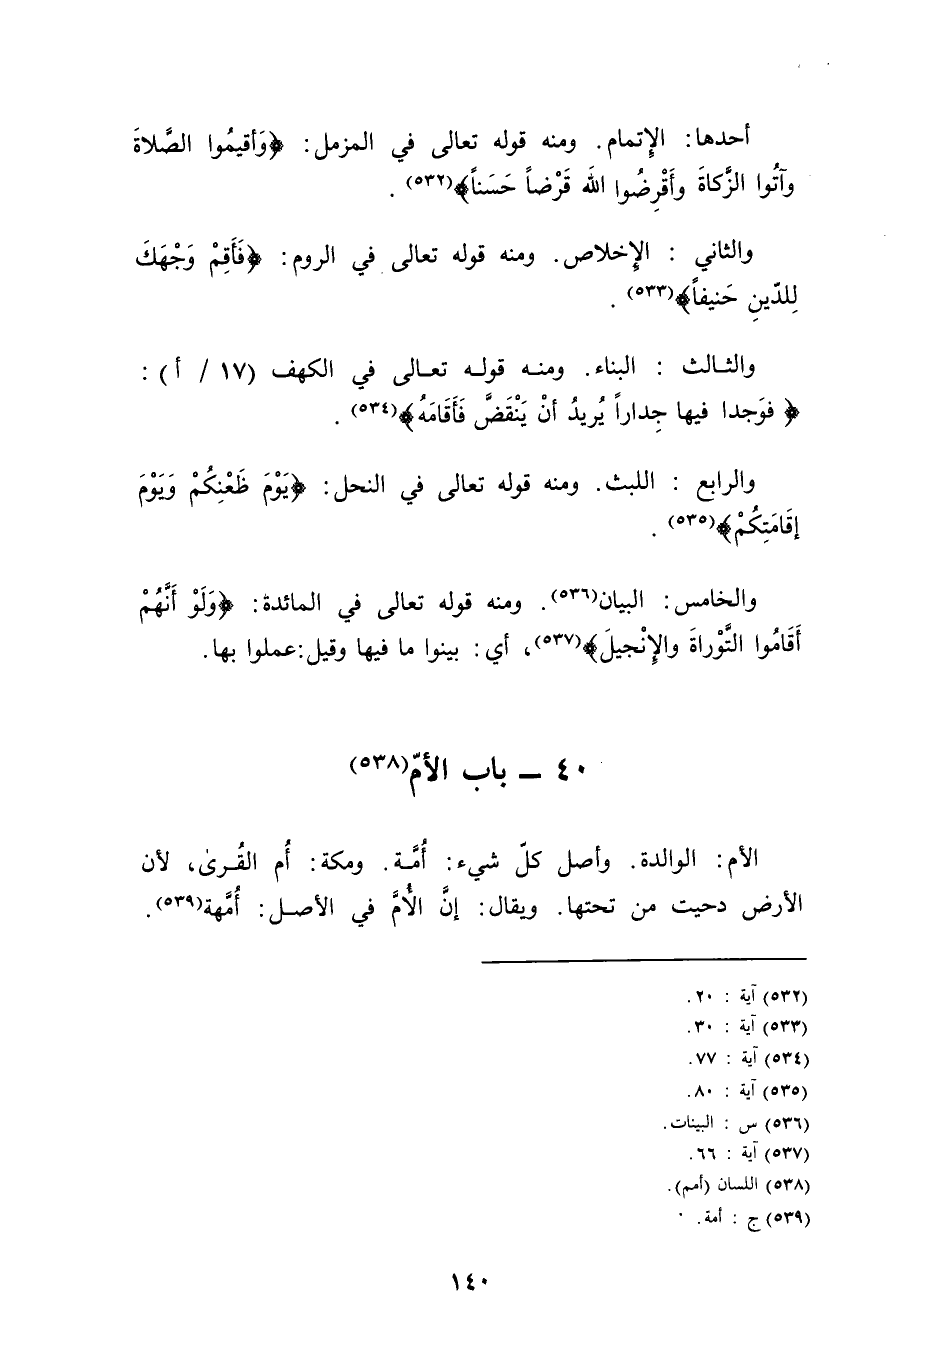 أحدها: الإِتمام. ومنه قوله تعالى في المزمل: ﴿وَأقيمُوا الصَّلاةَ
وآتُوا الزَّكاةَ وأَقْرِضُوا اللَّه قَرْضاً حَسَناً﴾(٥٣٢) .
والثاني : الإِخلاص. ومنه قوله تعالى في الروم: ﴿فَأَقِمْ وَجْهَكَ
لِلدّينِ حَنيفاً﴾(٥٣٣) .
والثـالث : البناء. ومنـه قولـه تعـالى في الكهف (١٧ / أ) :
﴿ فوَجدا فيها جِداراً يُريدُ أنْ يَنْقَضَّ فَأَقَامَهُ﴾(٥٣٤) .
والرابع : اللبث. ومنه قوله تعالى في النحل: ﴿يَوْمَ ظَعْنِكُمْ وَيَوْمَ
إقَامَتِكُمْ﴾(٥٣٥) .
والخامس: البيان(٥٣٦). ومنه قوله تعالى في المائدة: ﴿وَلَوْ أَنَّهُمْ
أَقَامُوا التَّوْراةَ والإِنْجيلَ﴾(٥٣٧)، أي: بينوا ما فيها وقيل:عملوا بها.
٤٠ – باب الأمّ(٥٣٨)
الأم: الوالدة. وأصل كلّ شيء: أُمَّـة. ومكة: أُم القُـرىٰ، لأن
الأرض دحيت من تحتها. ويقال: إنَّ الأُمَّ في الأصـل: أُمَّهة(٥٣٩).
(٥٣٢) آية : ٢٠.
(٥٣٣) آية : ٣٠.
(٥٣٤) آية : ٧٧.
(٥٣٥) آية : ٨٠.
(٥٣٦) س : البينات.
(٥٣٧) آية : ٦٦.
(٥٣٨) اللسان (أمم).
(٥٣٩) ج : أمة.
١٤٠